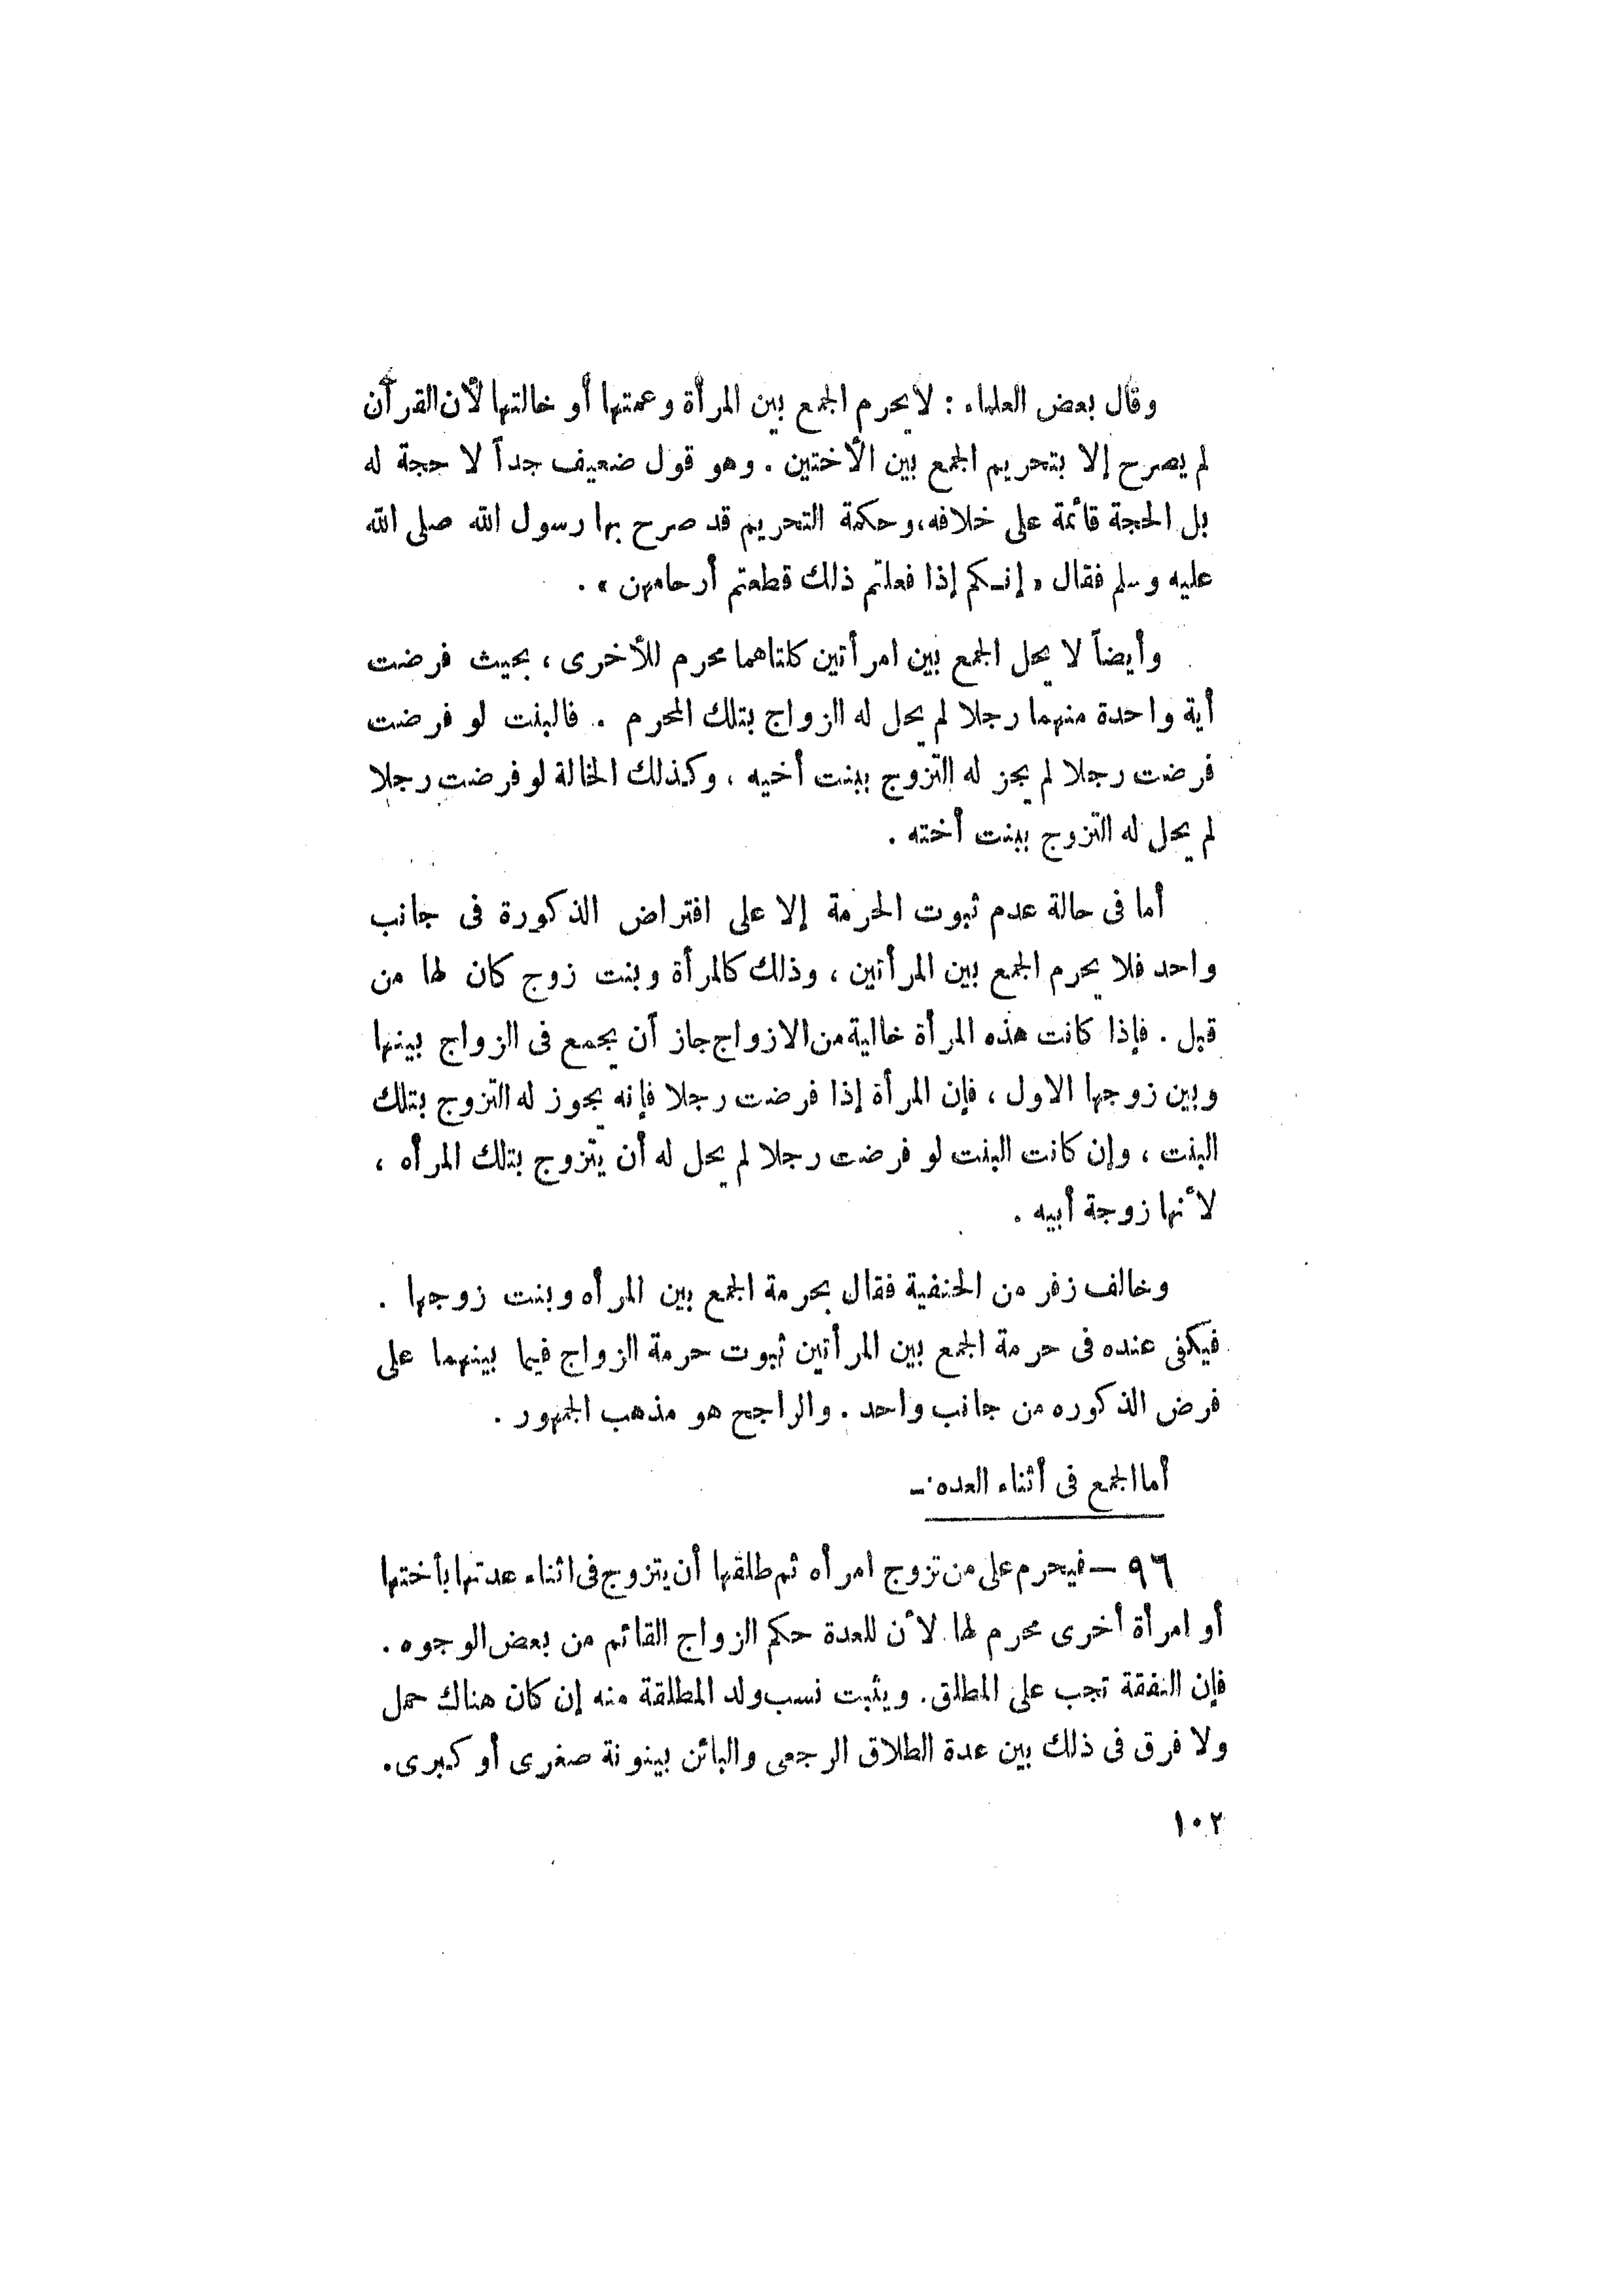 وقال بعض العلماء : لا يحرم الجمع بين المرأة وعمتها أو خالتها لأن القرآن
لم يصرح إلا بتحريم الجمع بين الأختين . وهو قول ضعيف جداً لا حجة له
بل الحجة قائمة على خلافه، وحكمة التحريم قد صرح بها رسول الله صلى الله
عليه وسلم فقال « إنكم إذا فعلتم ذلك قطعتم أرحامهن » .
وأيضاً لا يحل الجمع بين امرأتين كلتاهما محرم للأخرى ، بحيث فرضت
أية واحدة منهما رجلا لم يحل له الزواج بتلك المحرم . فالبنت لو فرضت
فرضت رجلا لم يجز له التزوج ببنت أخيه ، وكذلك الخالة لو فرضت رجلا
لم يحل له التزوج ببنت أخته .
أما فى حالة عدم ثبوت الحرمة إلا على افتراض الذكورة فى جانب
واحد فلا يحرم الجمع بين المرأتين ، وذلك كالمرأة وبنت زوج كان لها من
قبل . فإذا كانت هذه المرأة خالية من الازواج جاز أن يجمع فى الزواج بينها
وبين زوجها الاول ، فإن المرأة إذا فرضت رجلا فإنه يجوز له التزوج بتلك
البنت ، وإن كانت البنت لو فرضت رجلا لم يحل له أن يتزوج بتلك المرأه ،
لأنها زوجة أبيه .
وخالف زفر من الحنفية فقال بحرمة الجمع بين المرأه وبنت زوجها .
فيكفى عنده فى حرمة الجمع بين المرأتين ثبوت حرمة الزواج فيما بينهما على
فرض الذكوره من جانب واحد . والراجح هو مذهب الجمهور .
أما الجمع فى أثناء العده :-
٩٦ – فيحرم على من تزوج امرأه ثم طلقها أن يتزوج فى اثناء عدتها بأختها
أو امرأة أخرى محرم لها لأن للعدة حكم الزواج القائم من بعض الوجوه .
فإن النفقة تجب على المطلق . ويثبت نسب ولد المطلقة منه إن كان هناك حمل
ولا فرق فى ذلك بين عدة الطلاق الرجعى والبائن بينونة صغرى أو كبرى .
١٠٢